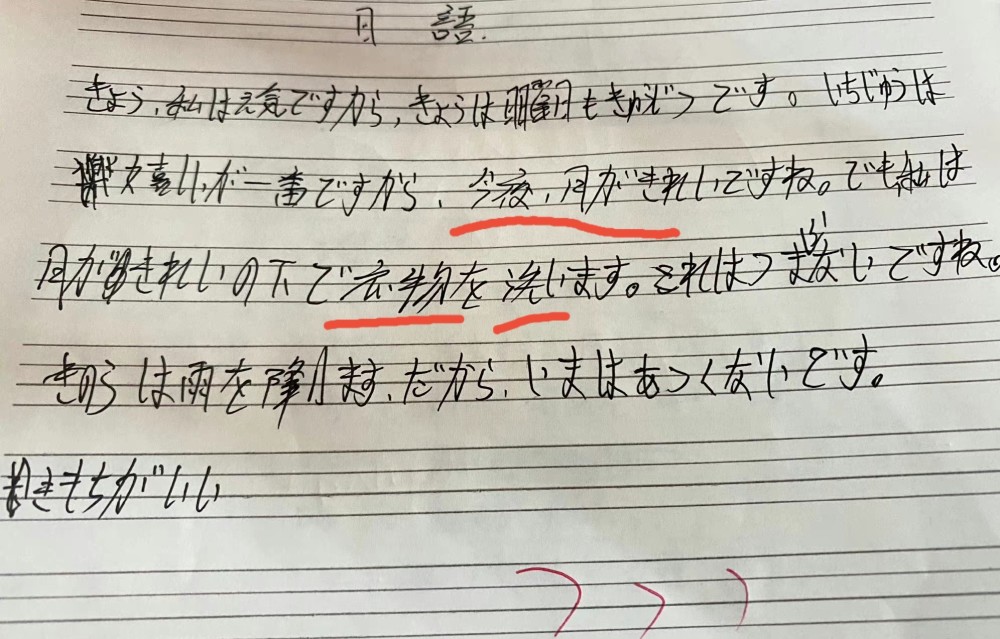 日 語.
きょう、私は元気ですから、きょうは日曜日もきゅうじつです。いちじゅうは
喜しいが一番ですから、今夜、月がきれいですね。でも私は
月がきれいの下で衣物を洗います。それはつまらないですね。
きのうは雨を降ります、だから、いまはあつくないです。
きもちがいい